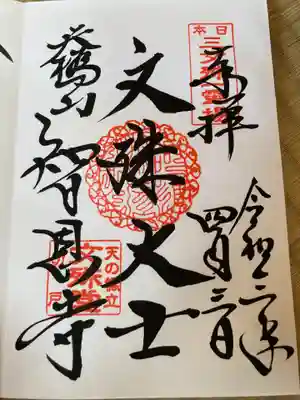 日本
奉拝
令和二年
四月三日
文殊大士
天橋山
智恩寺
天の橋立
文殊堂